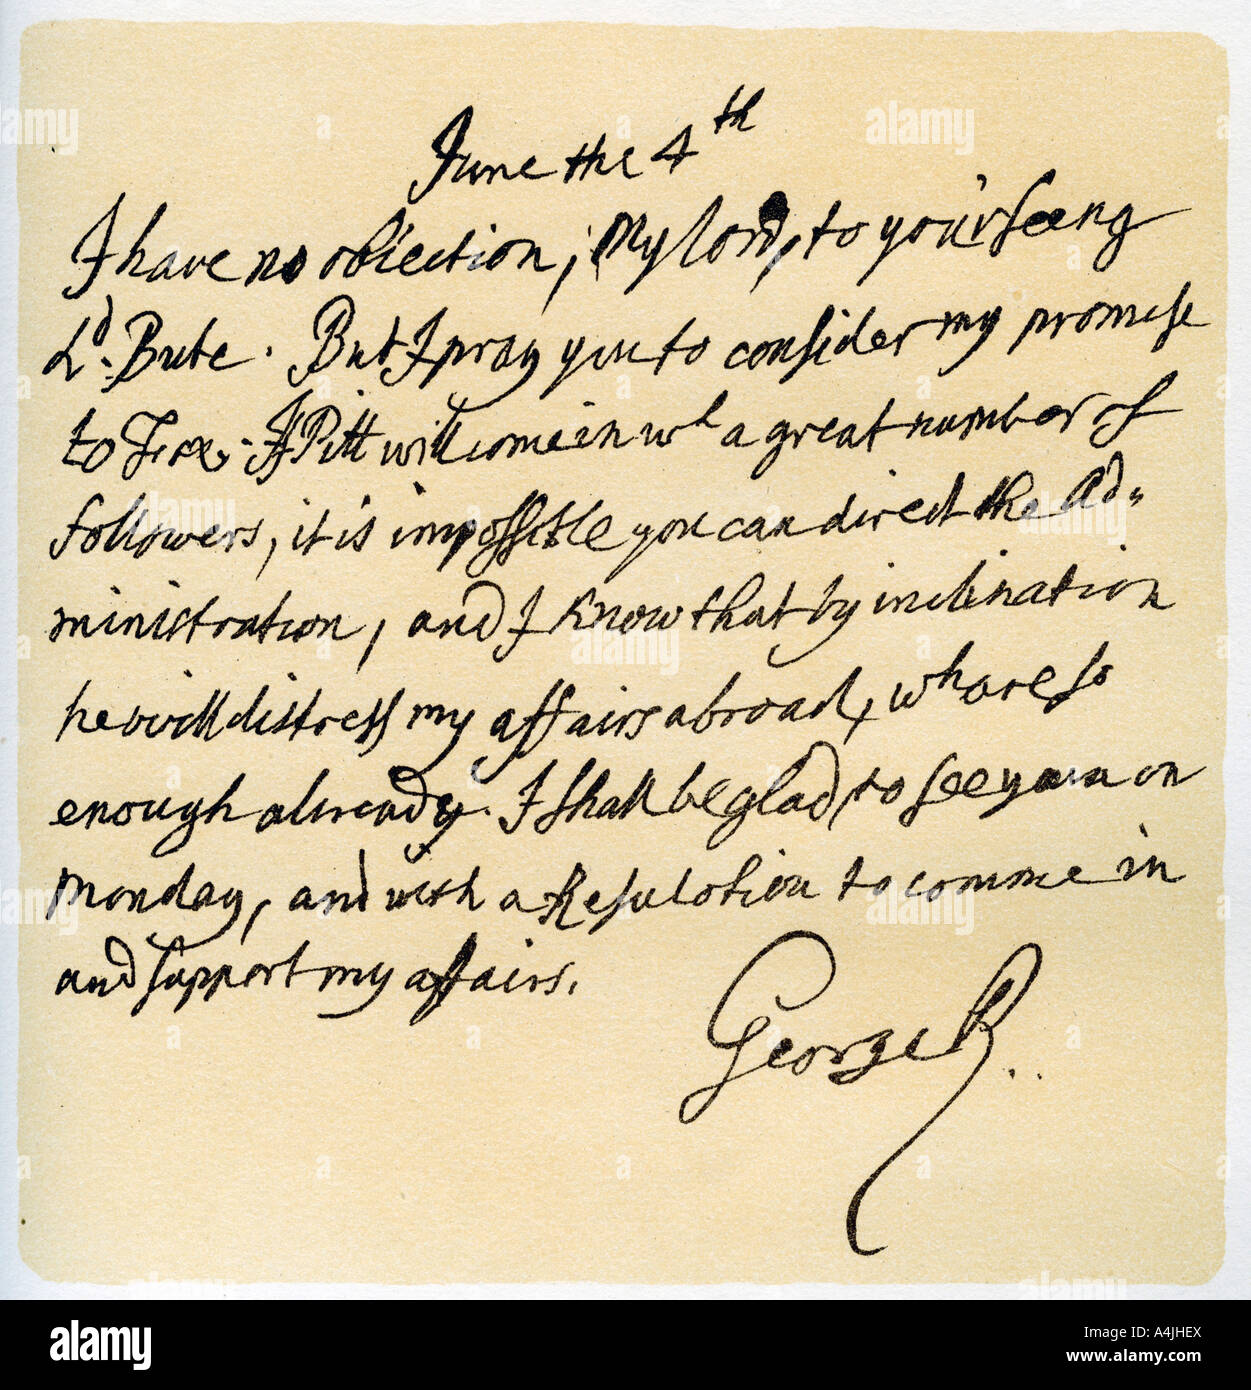 June the 4th
I have no obiection, My lord, to your seeing
Ld. Bute. But I pray you to consider my promise
to Fox. If Pitt will come in wh a great number of
followers, it is impossible you can direct the Ad=
ministration, and I know that by inclination
he will distress my affairs abroad, wh are so
enough already. I shall be glad to see you on
Monday, and with a Resulotion to comme in
and support my affairs.
George R.
alamy
Image ID: A4JHEX
www.alamy.com